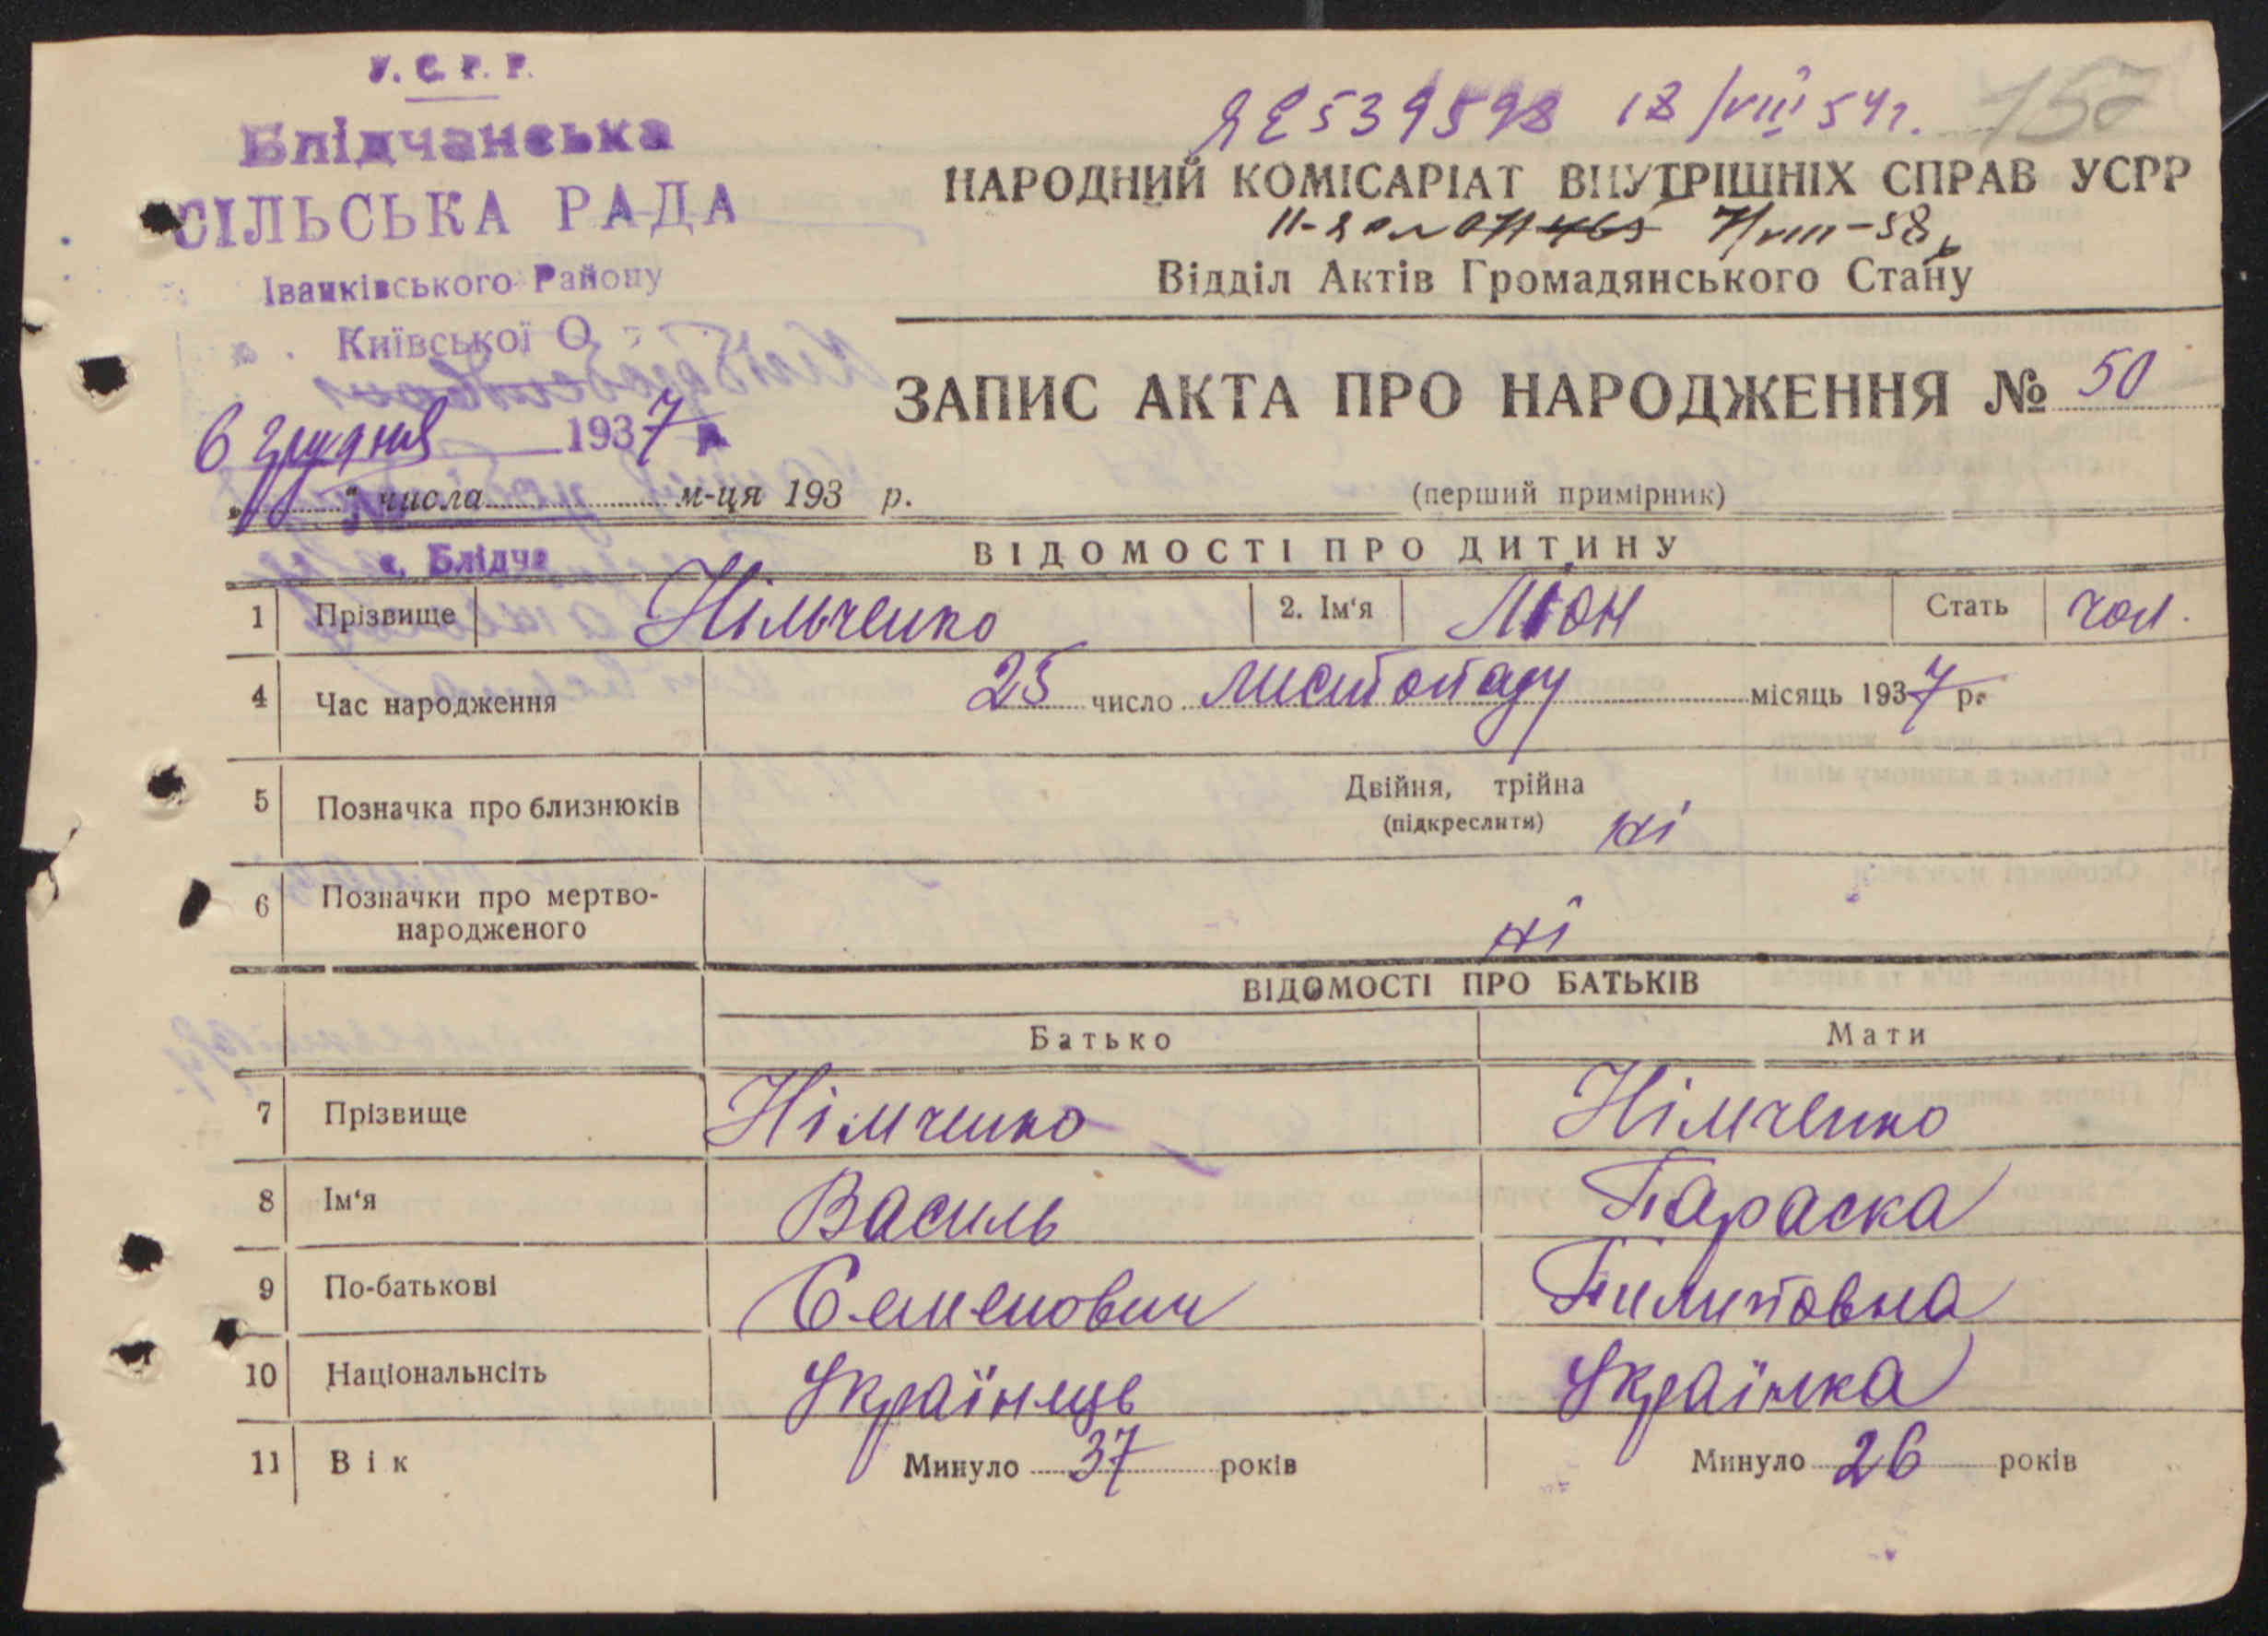 У. С. Р. Р.
Блідчанська
СІЛЬСЬКА РАДА
Іванківського Району
Київської О
6 грудня 1937 р
" числа м-ця 193 р.
с. Блідча
18/VIII 54 г. 157
НАРОДНИЙ КОМІСАРІАТ ВНУТРІШНІХ СПРАВ УСРР
7/VIII-58
Відділ Актів Громадянського Стану
ЗАПИС АКТА ПРО НАРОДЖЕННЯ № 50
(перший примірник)
ВІДОМОСТІ ПРО ДИТИНУ
1 Прізвище Німченко 2. Ім'я Ліон Стать чол.
4 Час народження 25 число листопаду місяць 1937 р.
5 Позначка про близнюків Двійня, трійна
(підкреслити) ні
6 Позначки про мертво-
народженого ні
ВІДОМОСТІ ПРО БАТЬКІВ
Батько Мати
7 Прізвище Німченко Німченко
8 Ім'я Василь Параска
9 По-батькові Семенович Пилиповна
10 Національнсіть Українець Українка
11 Вік Минуло 37 років Минуло 26 років